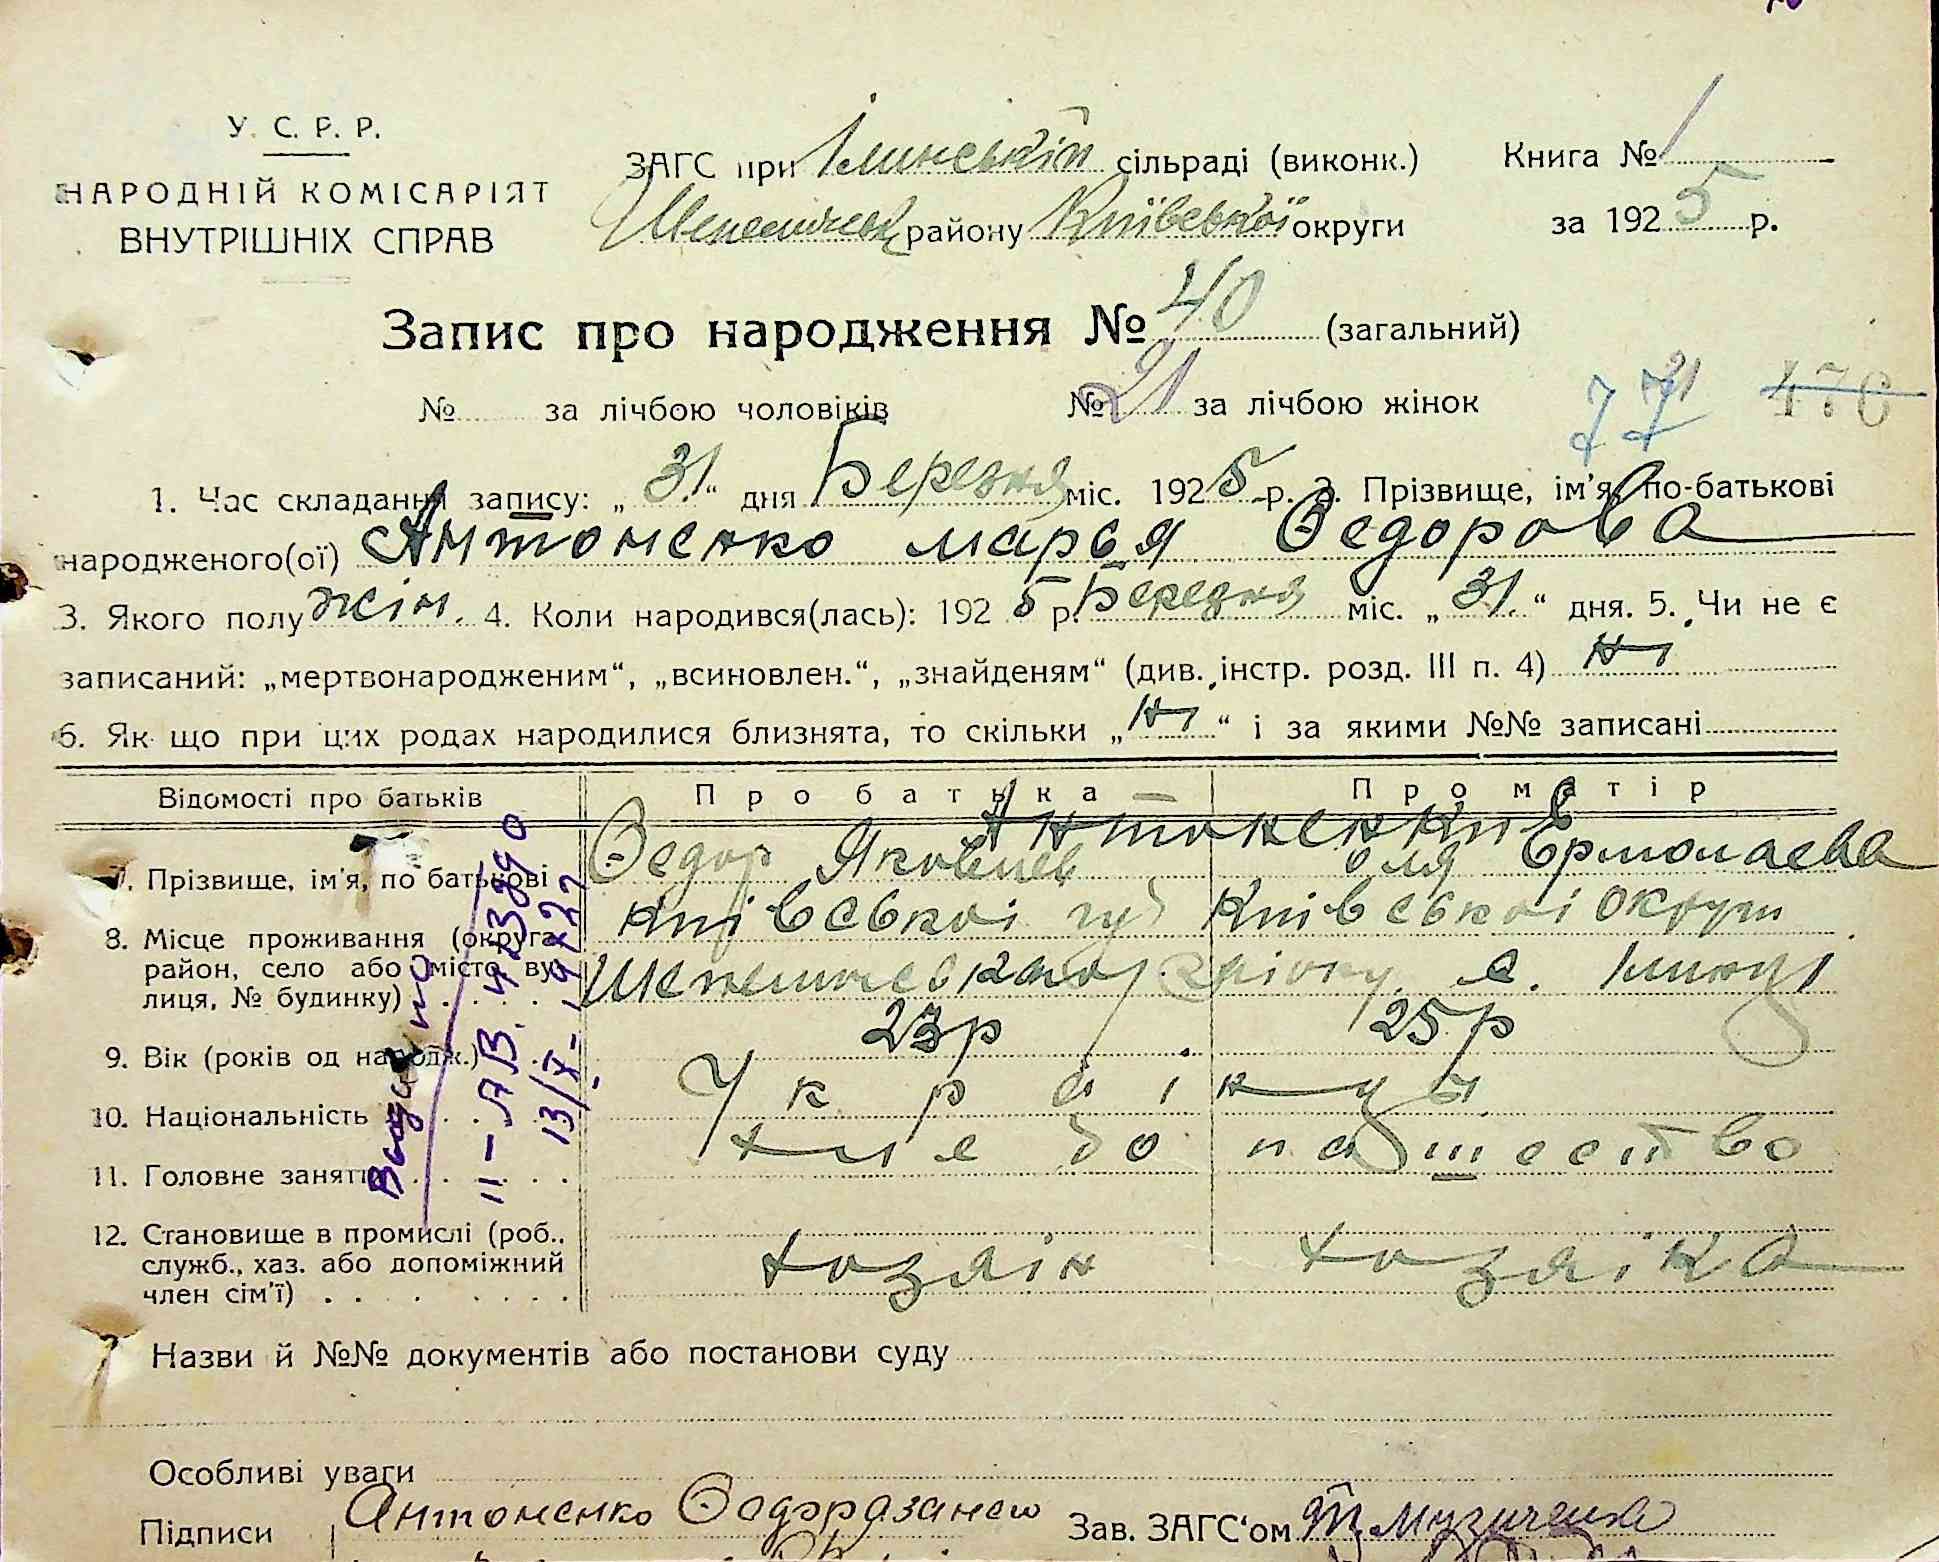 У. С. Р. Р.
НАРОДНІЙ КОМІСАРІЯТ
ВНУТРІШНІХ СПРАВ
ЗАГС при Ілинській сільраді (виконк.) Книга № 1
району Київської округи за 1925 р.
Запис про народження № 40 (загальний)
№ за лічбою чоловіків № 21 за лічбою жінок
1. Час складання запису: „31“ дня Березня міс. 1925 р. 2. Прізвище, ім'я, по-батькові
народженого(ої) Антоненко Марья Ѳедорова
3. Якого полу жін. 4. Коли народився(лась): 1925 р. Березня міс. „31.“ дня. 5. Чи не є
записаний: „мертвонародженим“, „всиновлен.“, „знайденям“ (див. інстр. розд. III п. 4) ні
6. Як що при цих родах народилися близнята, то скільки „ні“ і за якими №№ записані
Відомості про батьків Про батька Про матір
Антоненки
7. Прізвище, ім'я, по батькові Ѳедор Яковлев Оля Ермолаева
8. Місце проживання (округа, Київської губ Київської округи
район, село або місто ву-
лиця, № будинку) с.
9. Вік (років од народж.) 23 р 25 р
10. Національність Українцы
11. Головне заняття хлебопашество
12. Становище в промислі (роб.,
служб., хаз. або допоміжний хозяін хозяіка
член сім'ї)
II-АВ. 423890
13/X-1927
Назви й №№ документів або постанови суду
Особливі уваги
Підписи Антоненко Зав. ЗАГС'ом Музиченко